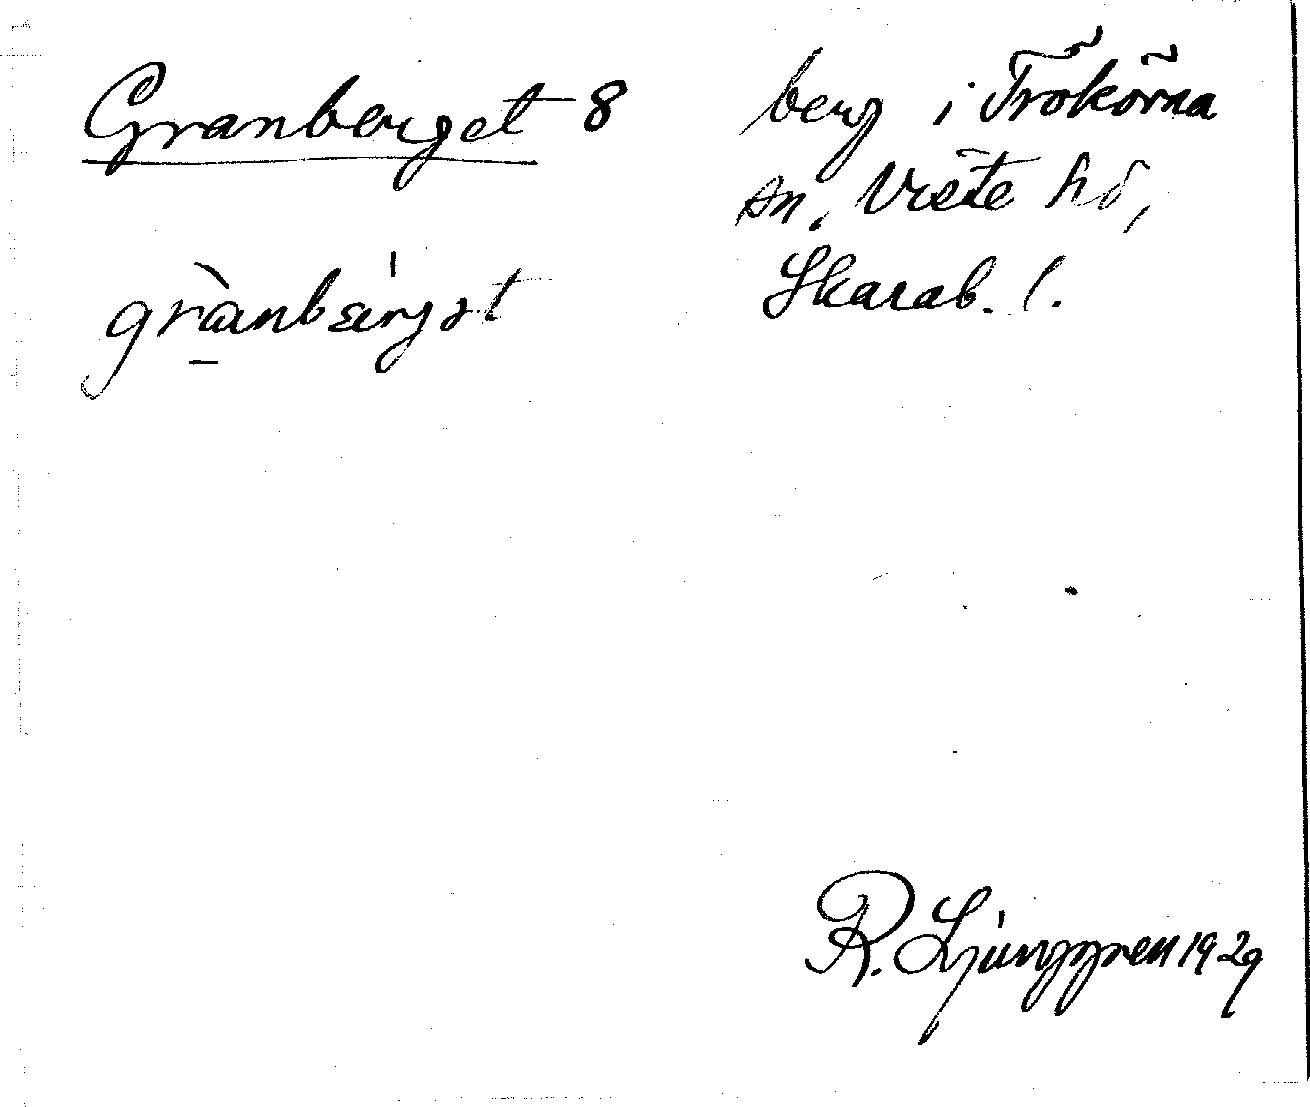 Granberget 8
grànbær̍gət
berg i Trökörna
sn, Viste hd,
Skarab. l.
R. Ljunggren 1929